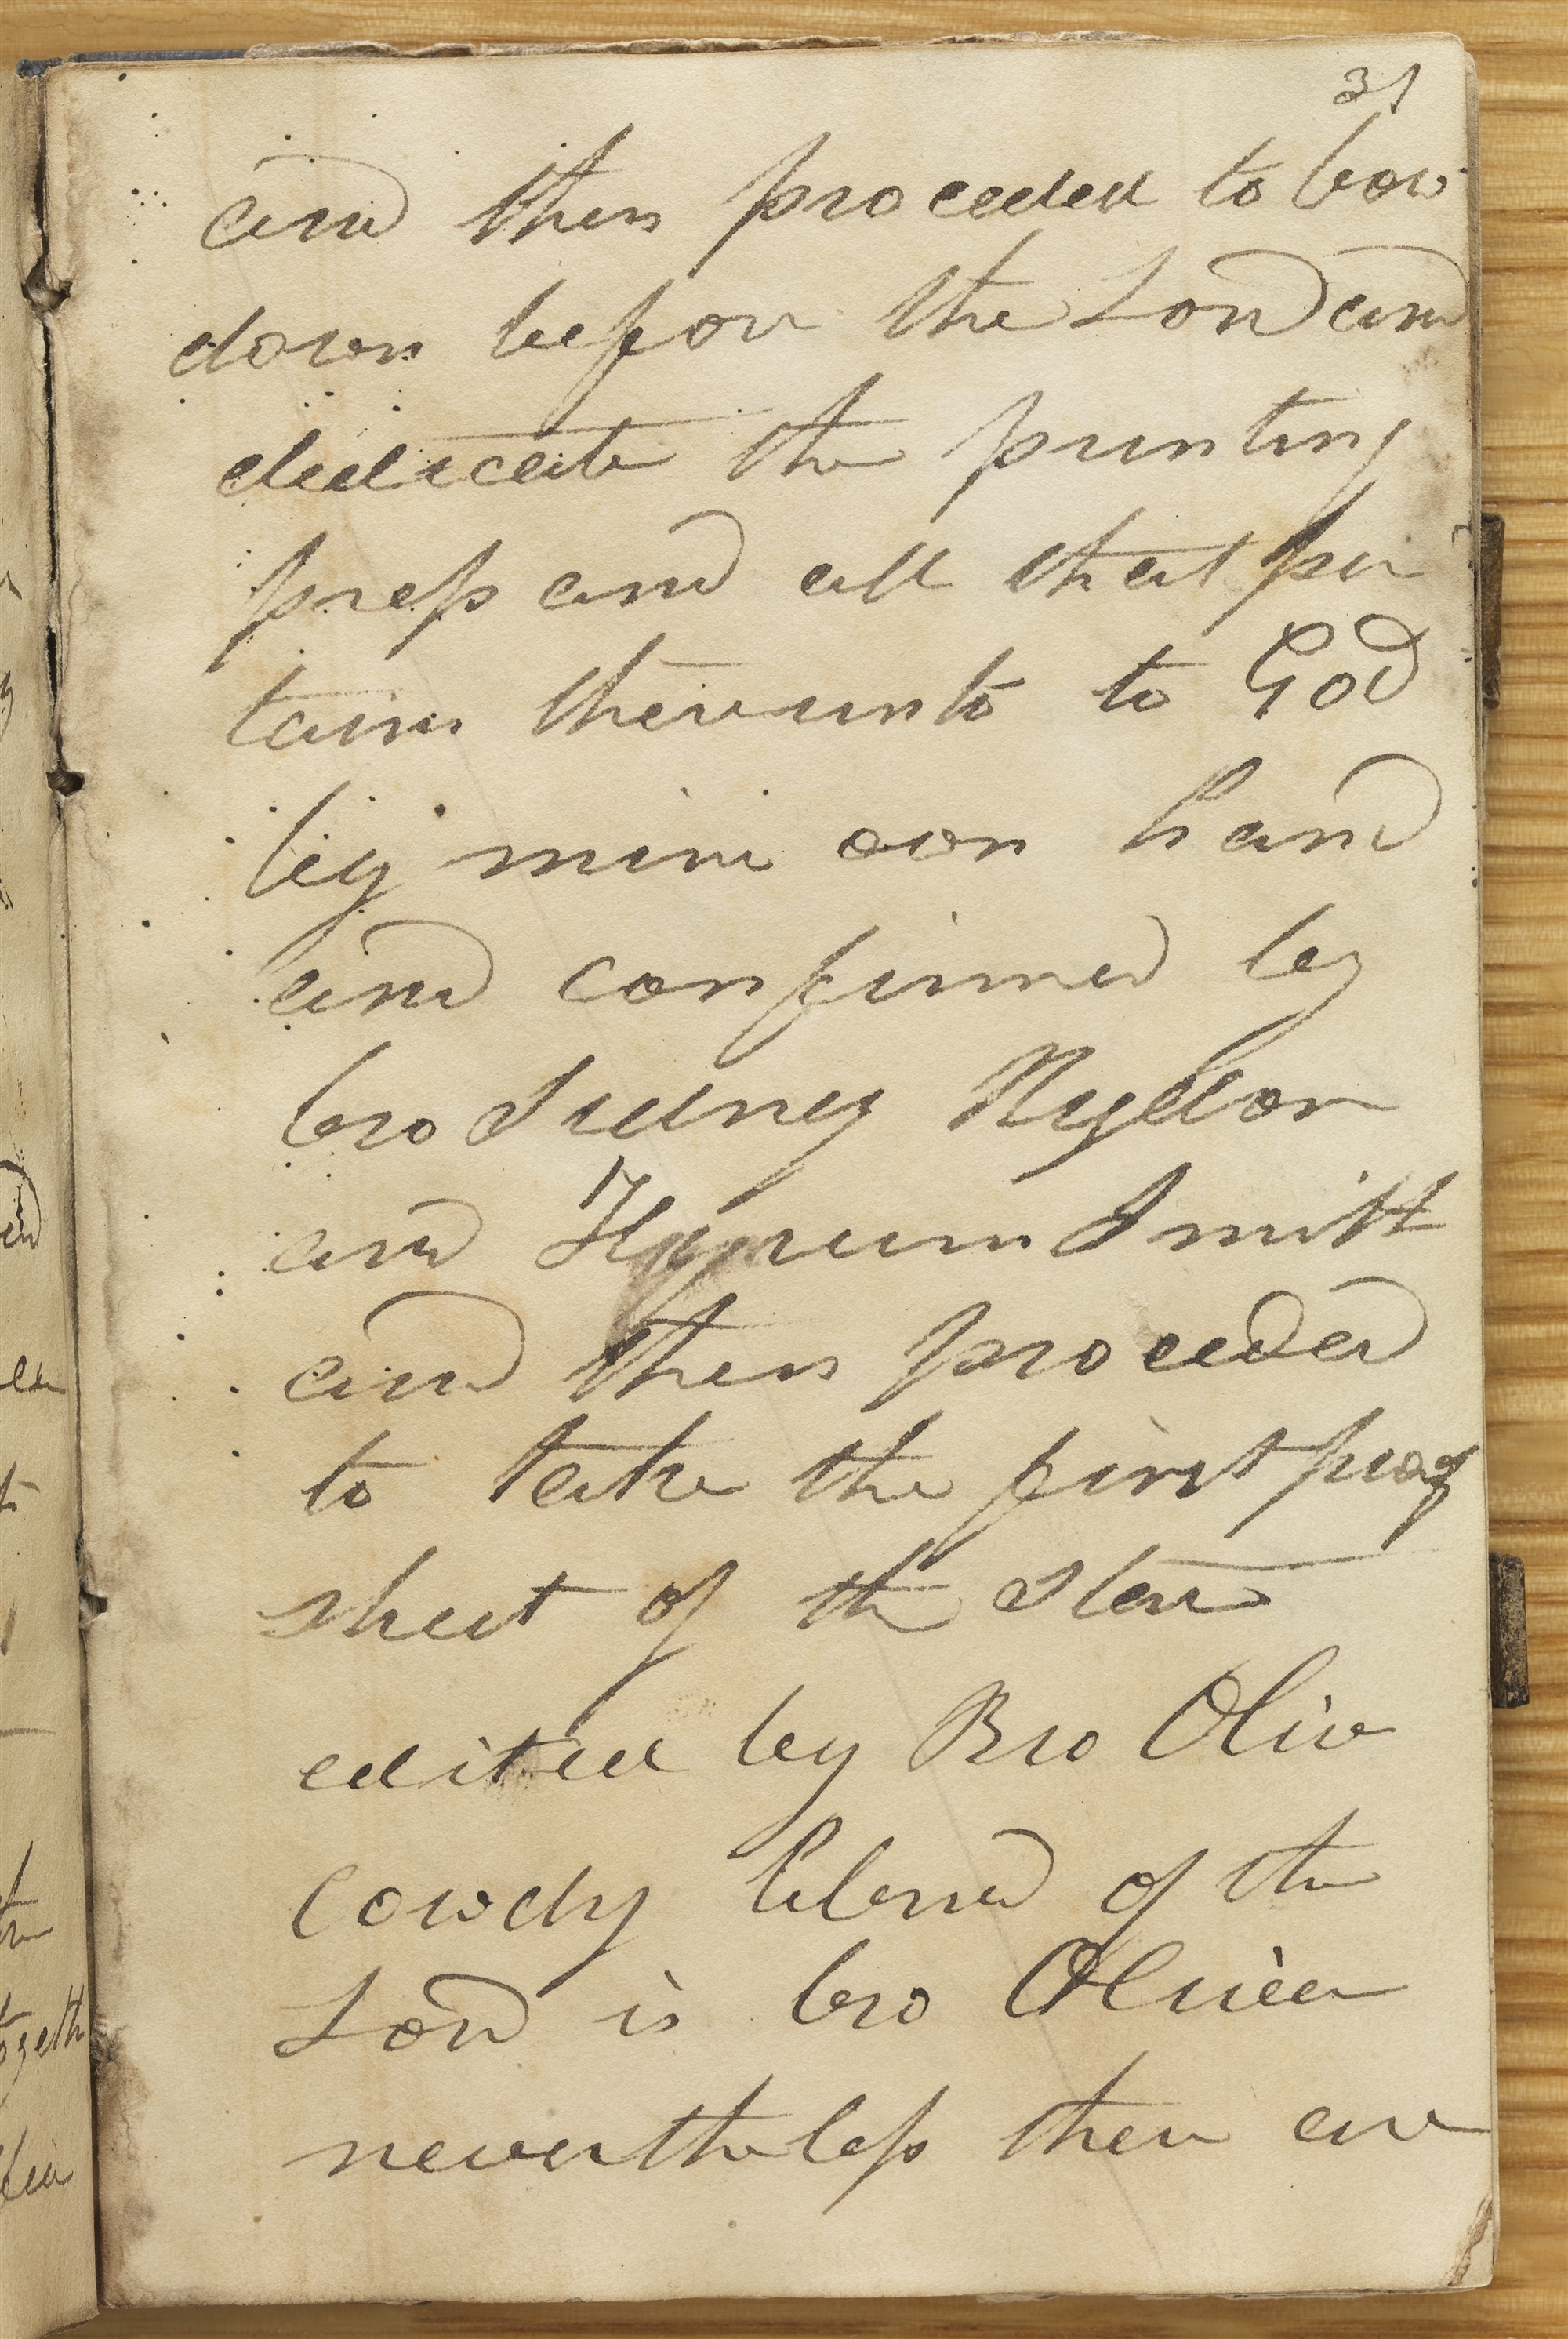 31
and then proceded to bow
down before the Lord and
dedicate the printing
press and all that per
tains thereunto to God
by mine own hand
and confirmed by
bro Sidney Rigdon
and Hyrum Smith
and then proceded
to take the first proof
sheet of the star
edited by Bro Oliv
Cowdry blessed of the
Lord is bro Oliver
nevertheless there are